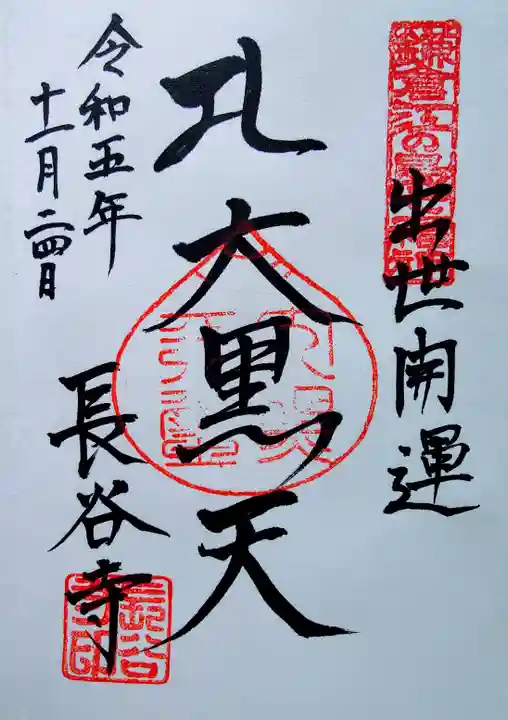 鎌倉江の島七福神
出世開運
大黒天
令和五年
十一月二四日
長谷寺
長谷
寺印